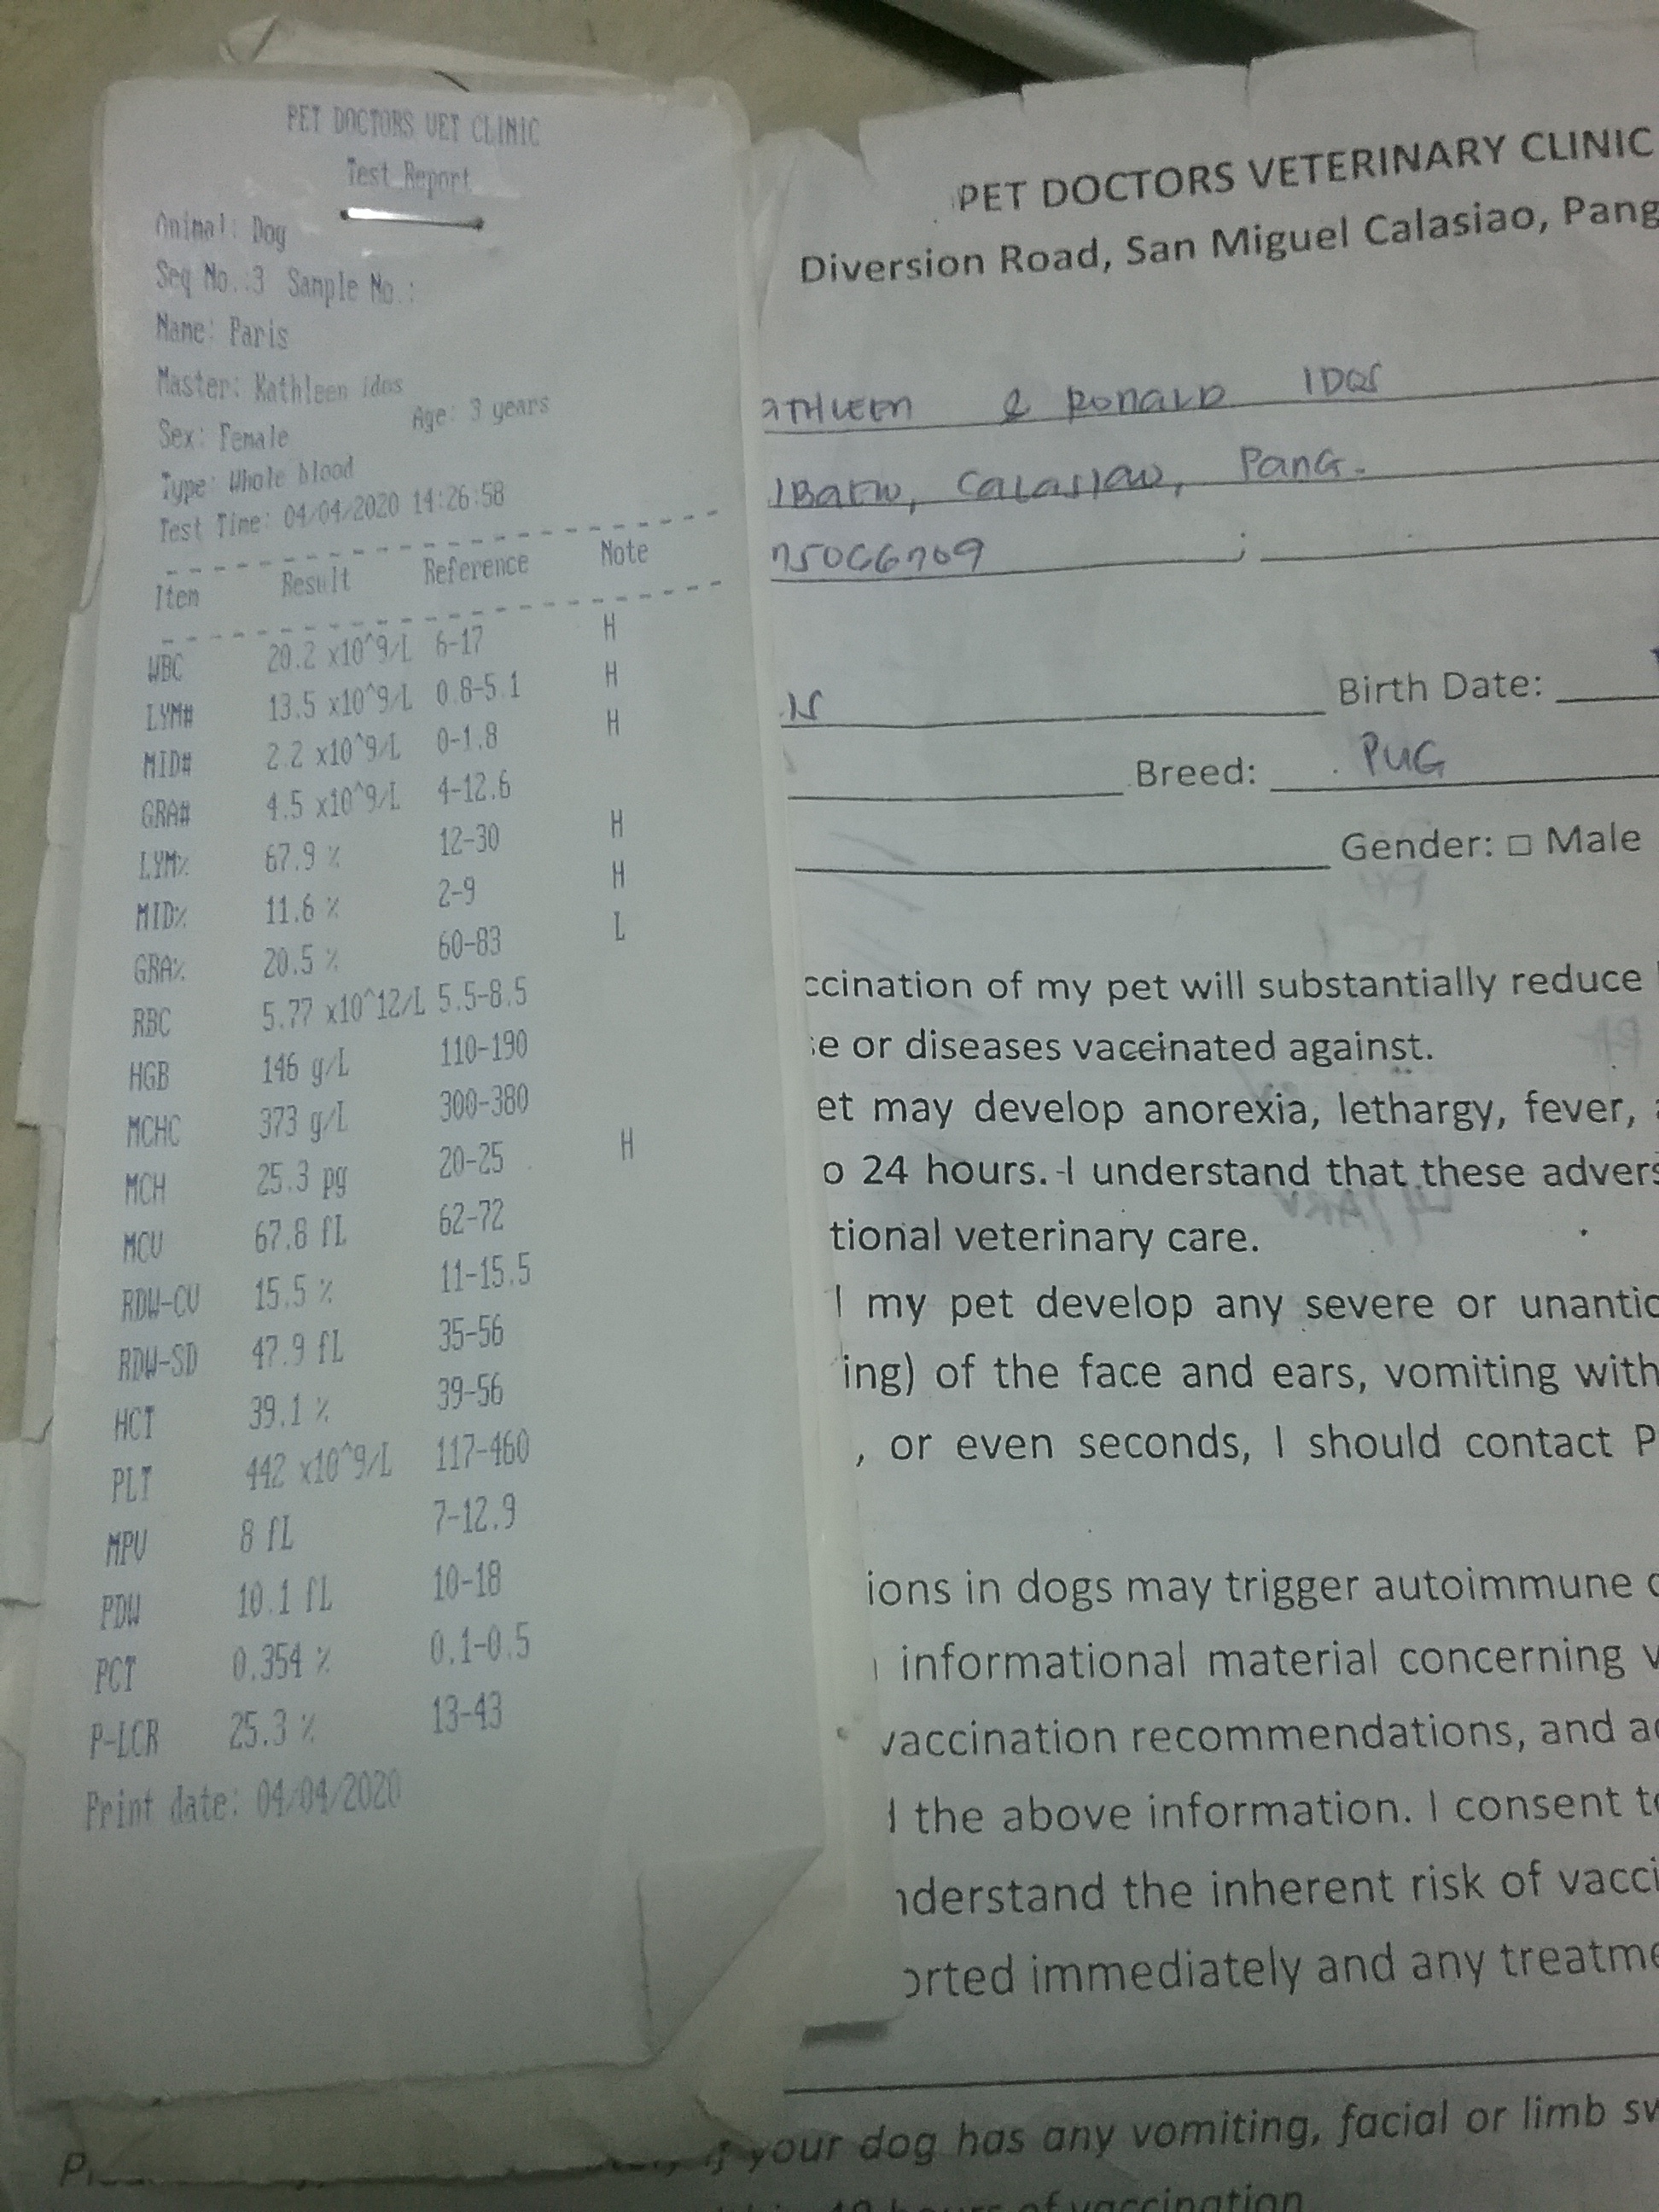 PET DOCTORS VET CLINIC
Test Report
Animal: Dog
Seq No.:3 Sample No.:
Name: Paris
Master: Kathleen idos
Sex: Female Age: 3 years
Type: Whole blood
Test Time: 04/04/2020 14:26:58
Item Result Reference Note
WBC 20.2 x10^9/L 6-17 H
LYM# 13.5 x10^9/L 0.8-5.1 H
MID# 2.2 x10^9/L 0-1.8 H
GRA# 4.5 x10^9/L 4-12.6
LYM% 67.9 % 12-30 H
MID% 11.6 % 2-9 H
GRA% 20.5 % 60-83 L
RBC 5.77 x10^12/L 5.5-8.5
HGB 146 g/L 110-190
MCHC 373 g/L 300-380
MCH 25.3 pg 20-25 H
MCV 67.8 fL 62-72
RDW-CV 15.5 % 11-15.5
RDW-SD 47.9 fL 35-56
HCT 39.1 % 39-56
PLT 442 x10^9/L 117-460
MPV 8 fL 7-12.9
PDW 10.1 fL 10-18
PCT 0.354 % 0.1-0.5
P-LCR 25.3 % 13-43
Print date: 04/04/2020
PET DOCTORS VETERINARY CLINIC
Diversion Road, San Miguel Calasiao, Pang
ATHLEEN & RONALD IDOS
CALASIAO, PANG.
75066709
IS
Birth Date:
Breed: PUG
Gender: □ Male
ccination of my pet will substantially reduce
se or diseases vaccinated against.
et may develop anorexia, lethargy, fever,
o 24 hours. I understand that these advers
tional veterinary care.
l my pet develop any severe or unantic
ing) of the face and ears, vomiting with
, or even seconds, I should contact P
ions in dogs may trigger autoimmune
informational material concerning v
vaccination recommendations, and ad
d the above information. I consent to
nderstand the inherent risk of vacci
orted immediately and any treatme
if your dog has any vomiting, facial or limb sw
hours of vaccination